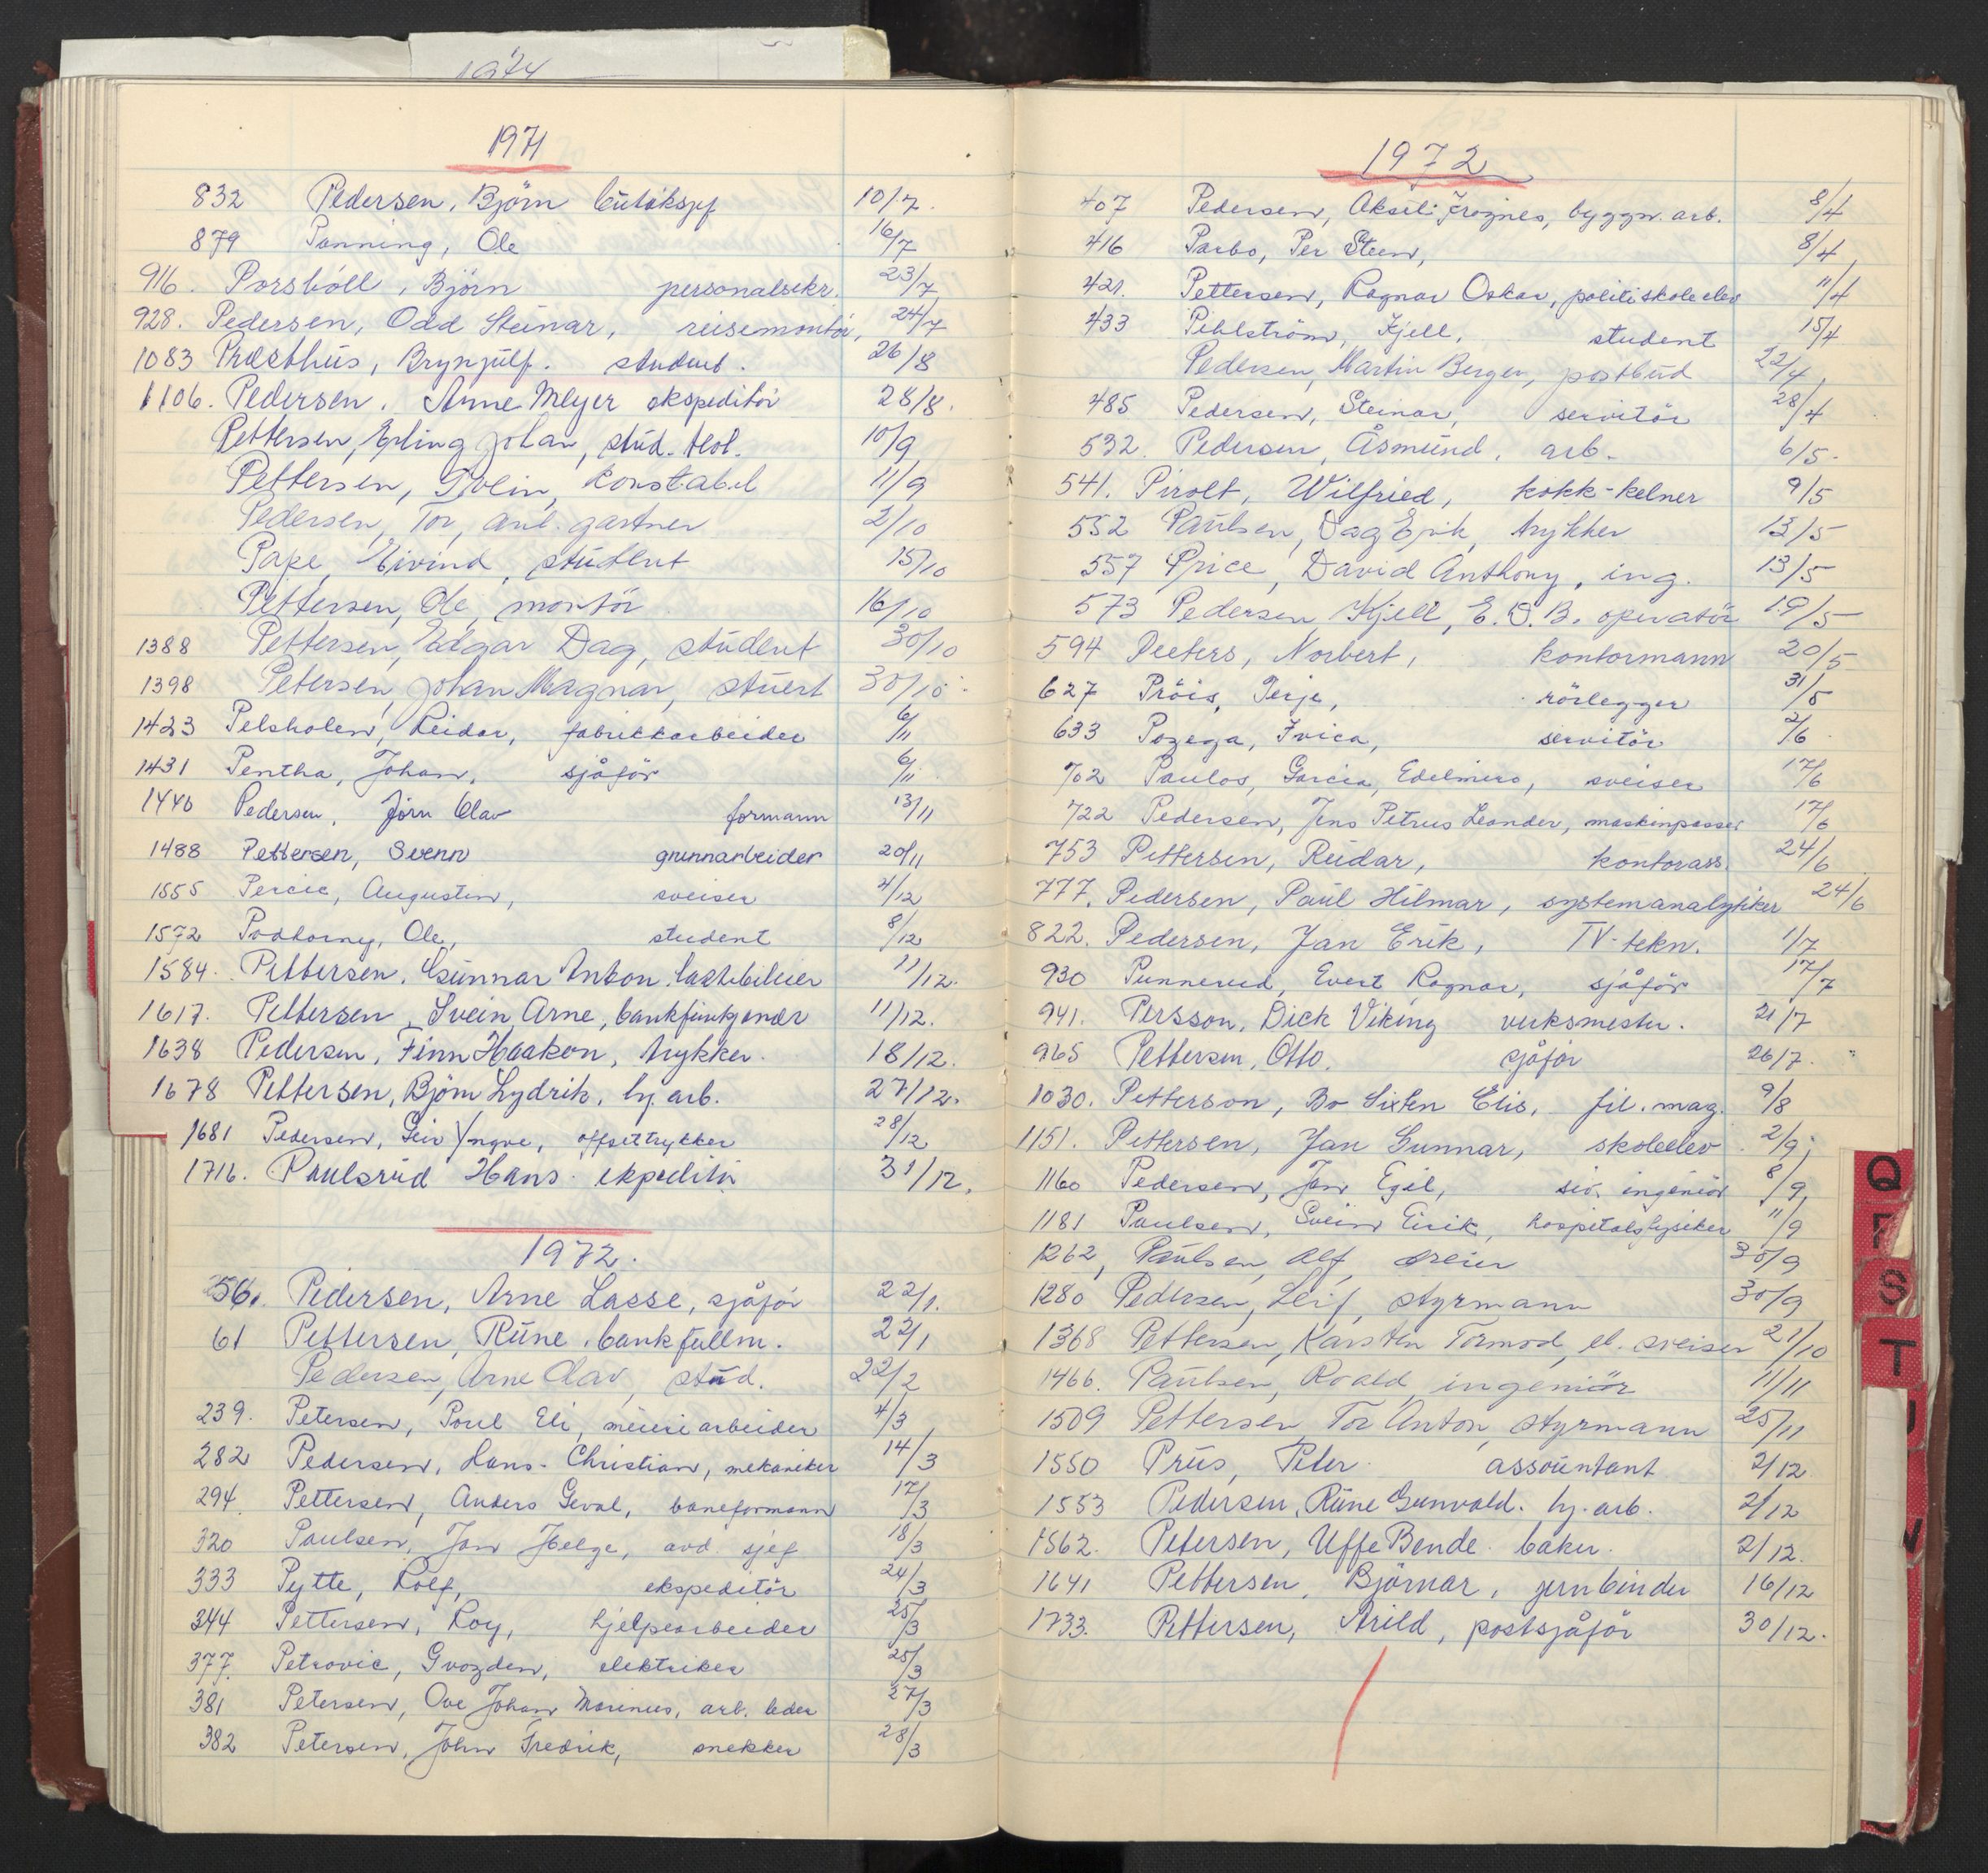 1974
1971
832 Pedersen, Björn 10/7.
879 Panning, Ole 16/7
916. Porsböll, Björn personalsekr. 23/7
928. Pedersen, Odd Steinar, reisemontör, 24/7
1083 Præsthus, Brynjulf. student. 26/8
1106. Pedersen, Arne Meyer ekspeditör 28/8.
Pettersen, Erling Johan, stud. teol. 10/9
Pettersen, konstabel 11/9
Pedersen, Tor, anl. gartner 2/10
Pape, Eivind, student 15/10
Pettersen, Ole, montör 16/10
1388 Pettersen, Edgar Dag, student 30/10
1398 Petersen, Johan Magnar, stuert 30/10.
1423 Pelsholen, Reidar, fabrikkarbeider 6/11
1431 Pentha, Johan, sjåför 6/11
1440 Pedersen, Jörn Olav formann 13/11
1488 Pettersen, Svenn grunnarbeider 20/11
1555 Percic, Augustin, sveiser 4/12
1572 Podhorny, Ole, student 8/12
1584. Pettersen, Gunnar Anton. lastebileier 11/12.
1617. Pettersen, Svein Arne, bankfunksjonær 11/12.
1638 Pedersen, Finn Haakon, trykker. 18/12.
1678 Pettersen, Björn Lydrik, hj. arb. 27/12.
1681 Pedersen, Geir Yngve, offsettrykker 28/12
1716. Paulsrud Hans. ekspeditör 31/12.
1972.
56. Pedersen, Arne Lasse, sjåför 22/1.
61 Pettersen, Rune, bankfullm. 22/1
Pedersen, Arne Olav, stud. 22/2
239. Petersen, Poul Eli, meieriarbeider 4/3
282 Pedersen, Hans-Christian, mekaniker 14/3
294 Pettersen, Anders Geval, baneformann 17/3
320 Paulsen, Jan Helge, avd. sjef 18/3
333 Pytte, Rolf, ekspeditör 24/3
344 Pettersen, Roy, hjelpearbeider 25/3
377. Petrovic, Gvozden, elektriker 25/3
381 Petersen, Ove Johan Marinus, arb. leder 27/3
382 Petersen, John Fredrik, snekker 28/3
1972
407 Pedersen, Aksel byggn. arb. 8/4
416 Parbo, Per Steen, 8/4
421. Pettersen, Ragnar Oskar, politiskoleelev 11/4
433 Pihlström, Kjell, student 15/4
Pedersen, Martin Berger, postbud 22/4
485 Pedersen, Steinar, servitör 28/4
532. Pedersen, Åsmund, arb. 6/5.
541. Pirolt, Wilfried, kokk-kelner 9/5
552 Paulsen, Dag Erik, trykker 13/5
557 Price, David Anthony, ing. 13/5
573 Pedersen Kjell, E.D.B. operatör 19/5
594 Peeters, Norbert, kontormann 20/5
627 Pröis, Terje, rörlegger 31/5
633 Pozega, Ivica, servitör 2/6
702 Paulos, Garcia, Edelmiro, sveiser 17/6
722 Pedersen, Jens Petrus Leander, maskinpasser 17/6
753 Pettersen, Reidar, kontorass. 24/6
777. Pedersen, Paul Hilmar, systemanalytiker 24/6
822. Pedersen, Jan Erik, TV-tekn. 1/7
930 Punnerud, Evert Ragnar, sjåför 17/7
941. Persson, Dick Viking verksmester. 21/7
965 Pettersen, Otto. sjåför 26/7.
1030. Petterson, Bo Sixten Elis, fil. mag. 9/8
1151. Pettersen, Jan Gunnar, skoleelev 2/9.
1160 Pedersen, Jan Egil, siv. ingeniör 8/9
1181 Paulsen, Svein Eirik, hospitalsfysiker 11/9
1262, Paulsen, Alf, dreier 30/9
1280 Pedersen, Leif, styrmann 30/9
1368 Pettersen, Karsten Tormod, el. sveiser 21/10
1466. Paulsen, Roald, ingeniör 11/11
1509 Pettersen, Tor Anton, styrmann 25/11
1550 Prus, Peter assountant 2/12
1553 Pedersen, Rune Gunvald. hj. arb. 2/12
1562. Petersen, Uffe Bende. baker. 2/12.
1641 Pettersen, Björnar, jernbinder 16/12
1733. Pettersen, Arild, postsjåför 30/12.
Q
S
T